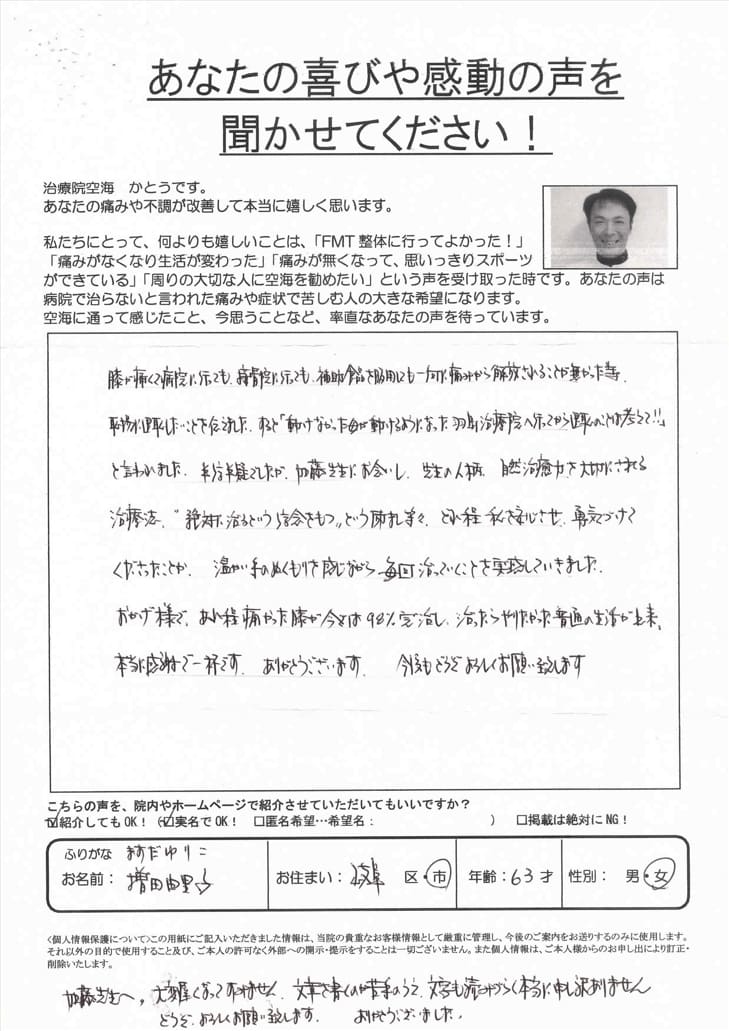 あなたの喜びや感動の声を
聞かせてください！
治療院空海　かとうです。
あなたの痛みや不調が改善して本当に嬉しく思います。
私たちにとって、何よりも嬉しいことは、「FMT 整体に行ってよかった！」
「痛みがなくなり生活が変わった」「痛みが無くなって、思いっきりスポーツ
ができている」「周りの大切な人に空海を勧めたい」という声を受け取った時です。あなたの声は
病院で治らないと言われた痛みや症状で苦しむ人の大きな希望になります。
空海に通って感じたこと、今思うことなど、率直なあなたの声を待っています。
膝が痛くて病院に行っても、接骨院に行っても、補助食品を服用しても一向に痛みから解放されることが無かった
ことを伝えた、すると「動けなかった母が動けるようになった 羽島治療院へ行ってから のことは考えて!!」
と言われました。半信半疑でしたが、加藤先生にお会いし、先生の人柄、自然治癒力を大切にされる
治療法、"絶対に治るという信念をもつ" どれ程 私を 勇気づけて
くださったことか、温かい手のぬくもりを感じながら毎回治っていくことを実感していきました。
おかげ様で、あれ程痛かった膝が今では98%完治し、治ったらやりたかった普通の生活が出来、
本当に感謝で一杯です。ありがとうございます。今後もどうぞよろしくお願い致します
こちらの声を、院内やホームページで紹介させていただいてもいいですか？
☑紹介してもOK！（☑実名でOK！　□匿名希望…希望名：　　　　　）　□掲載は絶対にNG！
ふりがな　ますだゆりこ
お名前：増田由里子　お住まい：岐阜　区・市　年齢：63才　性別：　男・女
〈個人情報保護について〉この用紙にご記入いただきました情報は、当院の貴重なお客様情報として厳重に管理し、今後のご案内をお送りするのみに使用します。
それ以外の目的で使用すること及び、ご本人の許可なく外部への開示・提示をすることは一切ございません。また個人情報は、ご本人様からのお申し出により訂正・
削除いたします。
加藤先生へ。大変遅くなってすみません。文章を書くのが苦手のうえ、文字も読みづらく本当に申し訳ありません
どうぞ、よろしくお願い致します。ありがとうございました。